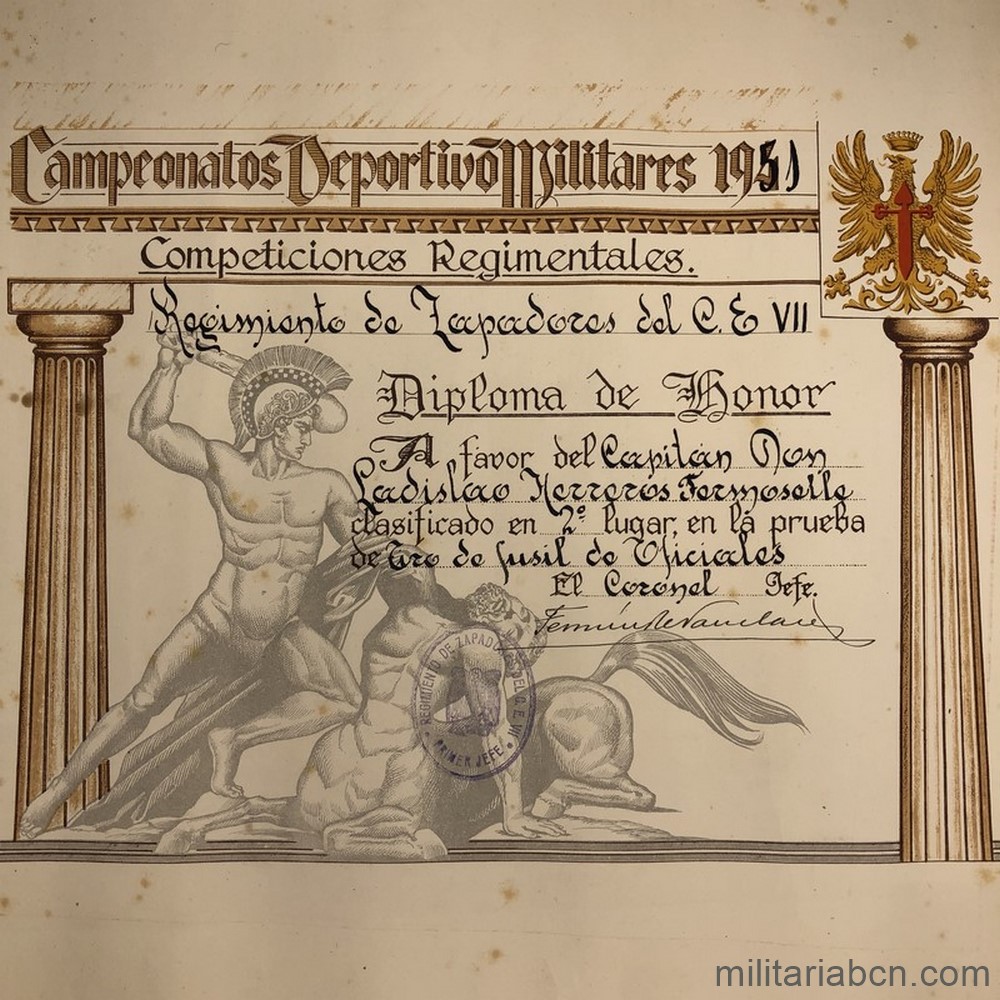 Campeonatos Deportivo Militares 1951
Competiciones Regimentales.
Regimiento de Zapadores del C. E VII
Diploma de Honor
A favor del Capitán Don
Ladislao Herreros Fermoselle
clasificado en 2º lugar, en la prueba
de Tiro de fusil de Oficiales
El Coronel Jefe.
REGIMIENTO DE ZAPADORES DEL C. E. VII
PRIMER JEFE
militariabcn.com